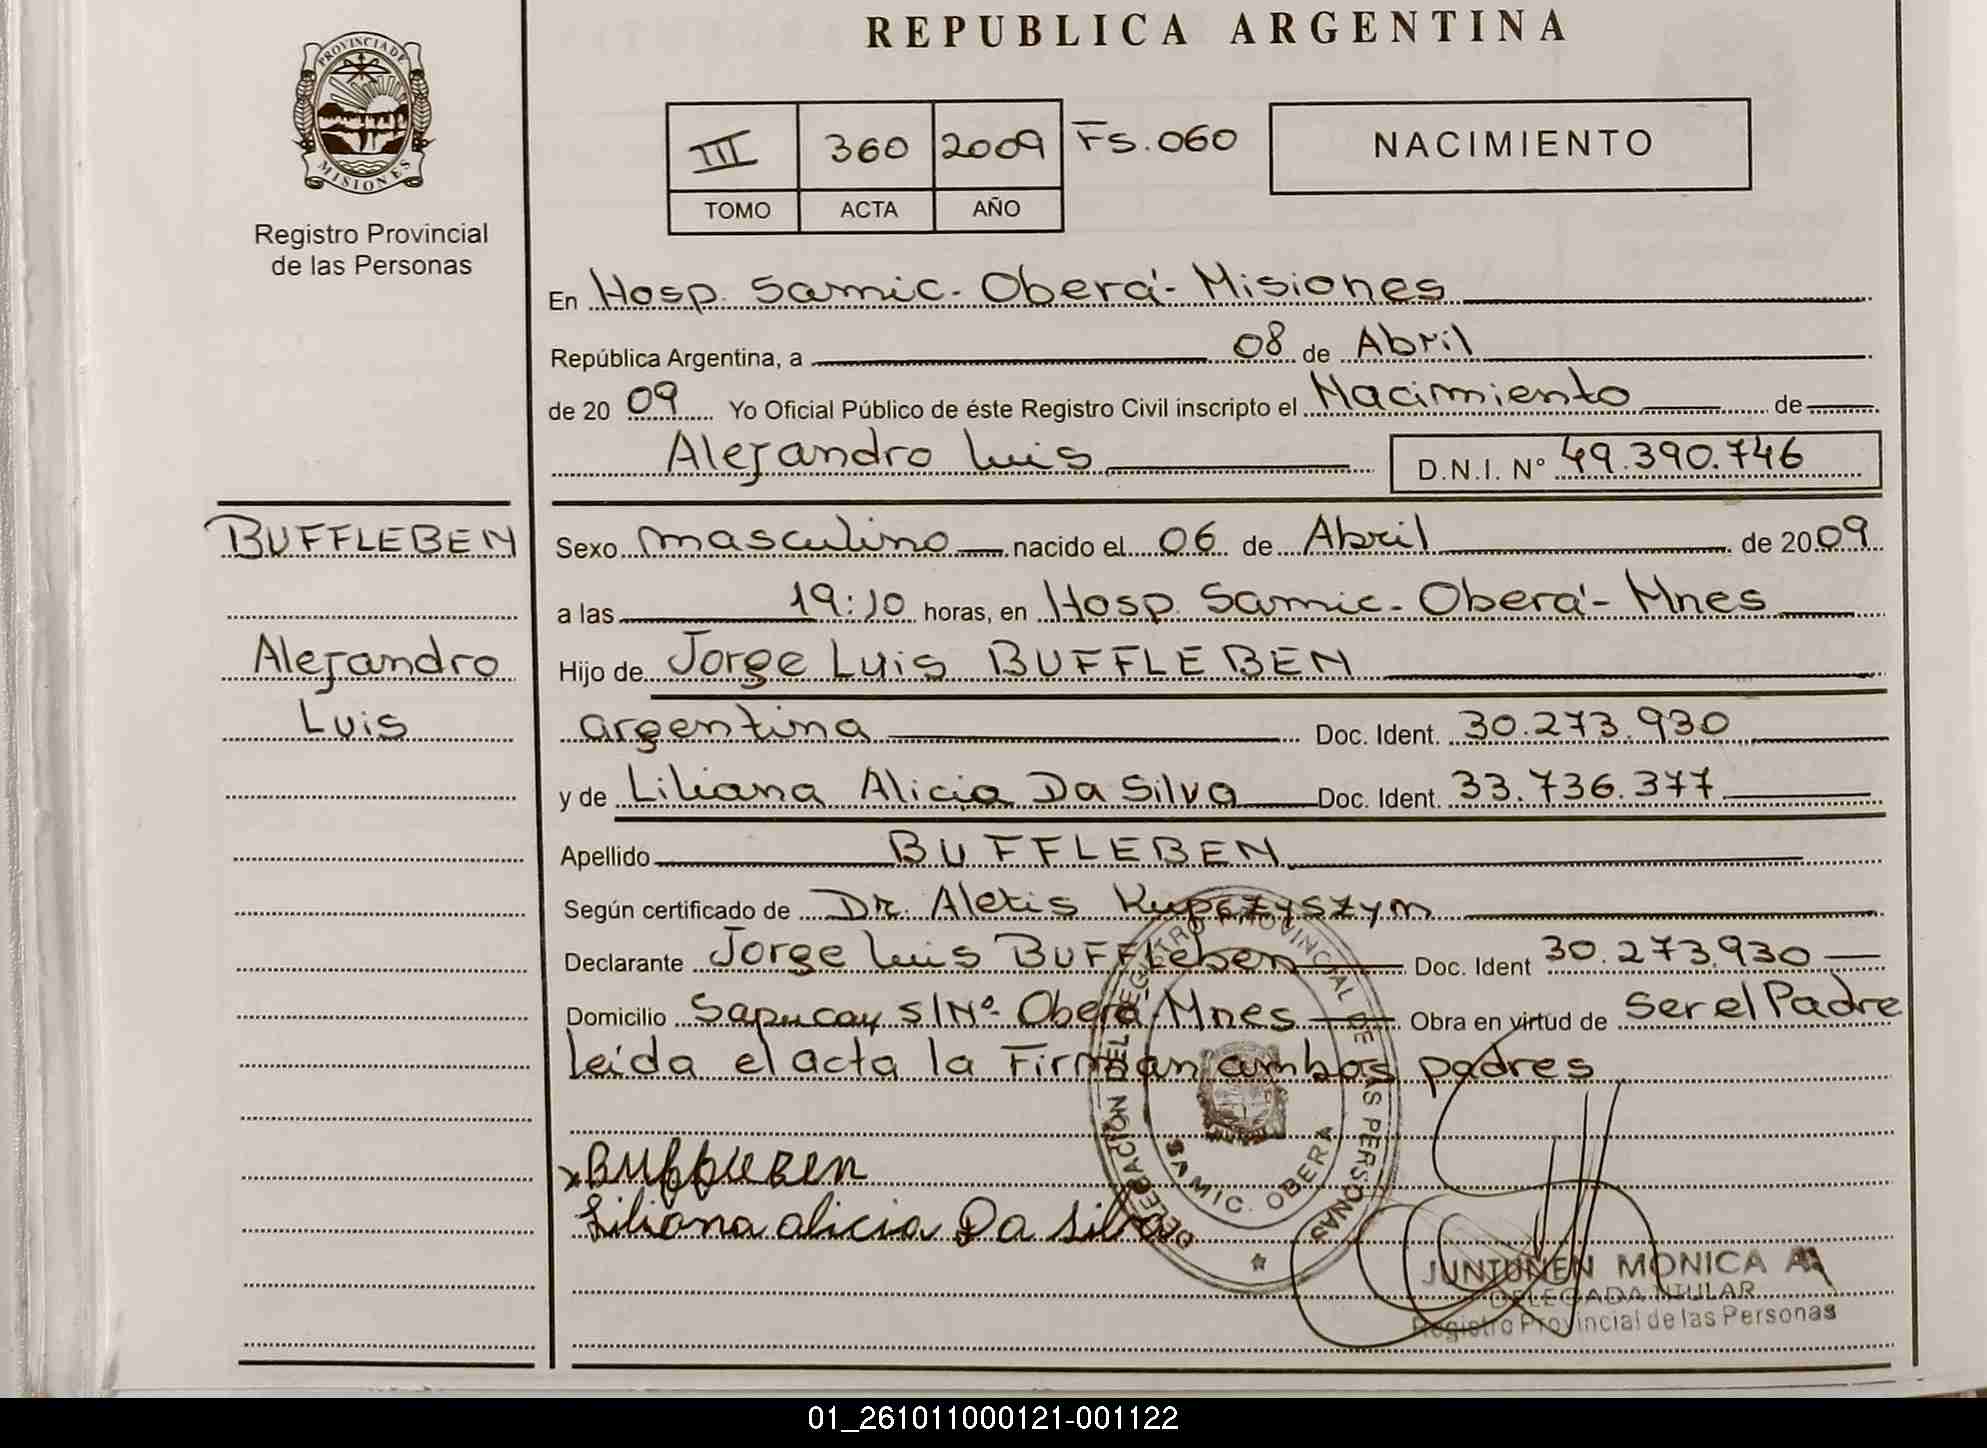 REPUBLICA ARGENTINA
PROVINCIA DE
MISIONES
Registro Provincial
de las Personas
III 360 2009 Fs.060
TOMO ACTA AÑO
NACIMIENTO
En Hosp. Samic - Oberá - Misiones
República Argentina, a 08 de Abril
de 20 09 Yo Oficial Público de éste Registro Civil inscripto el Nacimiento de
Alejandro Luis D.N.I. N° 49.390.746
BUFFLEBEN
Alejandro
Luis
Sexo masculino nacido el 06 de Abril de 20 09
a las 19:10 horas, en Hosp. Samic - Oberá - Mnes
Hijo de Jorge Luis BUFFLEBEN
argentina Doc. Ident. 30.273.930
y de Liliana Alicia Da Silva Doc. Ident. 33.736.377
Apellido BUFFLEBEN
Según certificado de Dr. Alexis Kupczyszym
Declarante Jorge Luis BUFFLeben Doc. Ident 30.273.930
Domicilio Sapucay S/Nº - Oberá - Mnes Obra en virtud de Ser el Padre
leída el acta la Firman ambos padres
x Buffleben
Liliana alicia Da silva
DELEGACION DEL REGISTRO PROVINCIAL DE LAS PERSONAS
SAMIC. OBERA
JUNTUNEN MONICA A.
DELEGADA TITULAR
Registro Provincial de las Personas
01_261011000121-001122